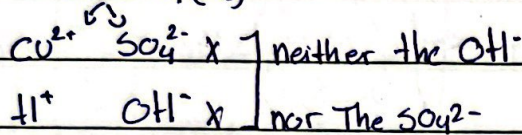 Cu²⁺ SO₄²⁻ x ] neither the OH⁻
H⁺ OH⁻ x ] nor The SO₄²⁻